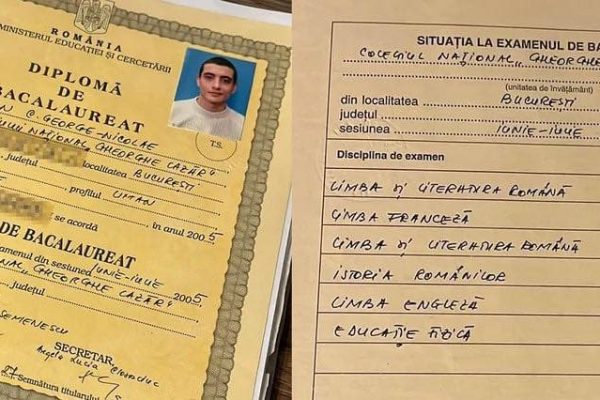 ROMÂNIA
MINISTERUL EDUCAȚIEI ȘI CERCETĂRII
DIPLOMĂ
DE
BACALAUREAT
C. GEORGE-NICOLAE
NAȚIONAL „GHEORGHE LAZĂR”
localitatea BUCUREȘTI
județul
, profilul UMAN
, în anul 2005
; se acordă
DE BACALAUREAT
examenul din sesiunea IUNIE-IULIE 2005
„GHEORGHE LAZĂR”
județul
SEMENESCU
SECRETAR,
Angela Lucia
Semnătura titularului
T.S.
SITUAȚIA LA EXAMENUL DE BA
COLEGIUL NAȚIONAL „GHEORGHE
(unitatea de învățământ)
din localitatea BUCUREȘTI
județul
sesiunea IUNIE-IULIE
Disciplina de examen
LIMBA ȘI LITERATURA ROMÂNĂ
LIMBA FRANCEZĂ
LIMBA ȘI LITERATURA ROMÂNĂ
ISTORIA ROMÂNILOR
LIMBA ENGLEZĂ
EDUCAȚIE FIZICĂ